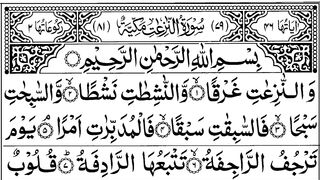 اٰیَاتُهَا ٤٦ (٧٩) سُوْرَةُ النّٰزِعٰتِ مَكِّیَّةٌ (٨١) رُكُوْعَاتُهَا ٢
بِسْمِ اللّٰهِ الرَّحْمٰنِ الرَّحِیْمِ
وَ النّٰزِعٰتِ غَرْقًا ۙ﴿١﴾ وَّ النّٰشِطٰتِ نَشْطًا ۙ﴿٢﴾ وَّ السّٰبِحٰتِ
سَبْحًا ۙ﴿٣﴾ فَالسّٰبِقٰتِ سَبْقًا ۙ﴿٤﴾ فَالْمُدَبِّرٰتِ اَمْرًا ۘ﴿٥﴾ یَوْمَ
تَرْجُفُ الرَّاجِفَةُ ۙ﴿٦﴾ تَتْبَعُهَا الرَّادِفَةُ ؕ﴿٧﴾ قُلُوْبٌ